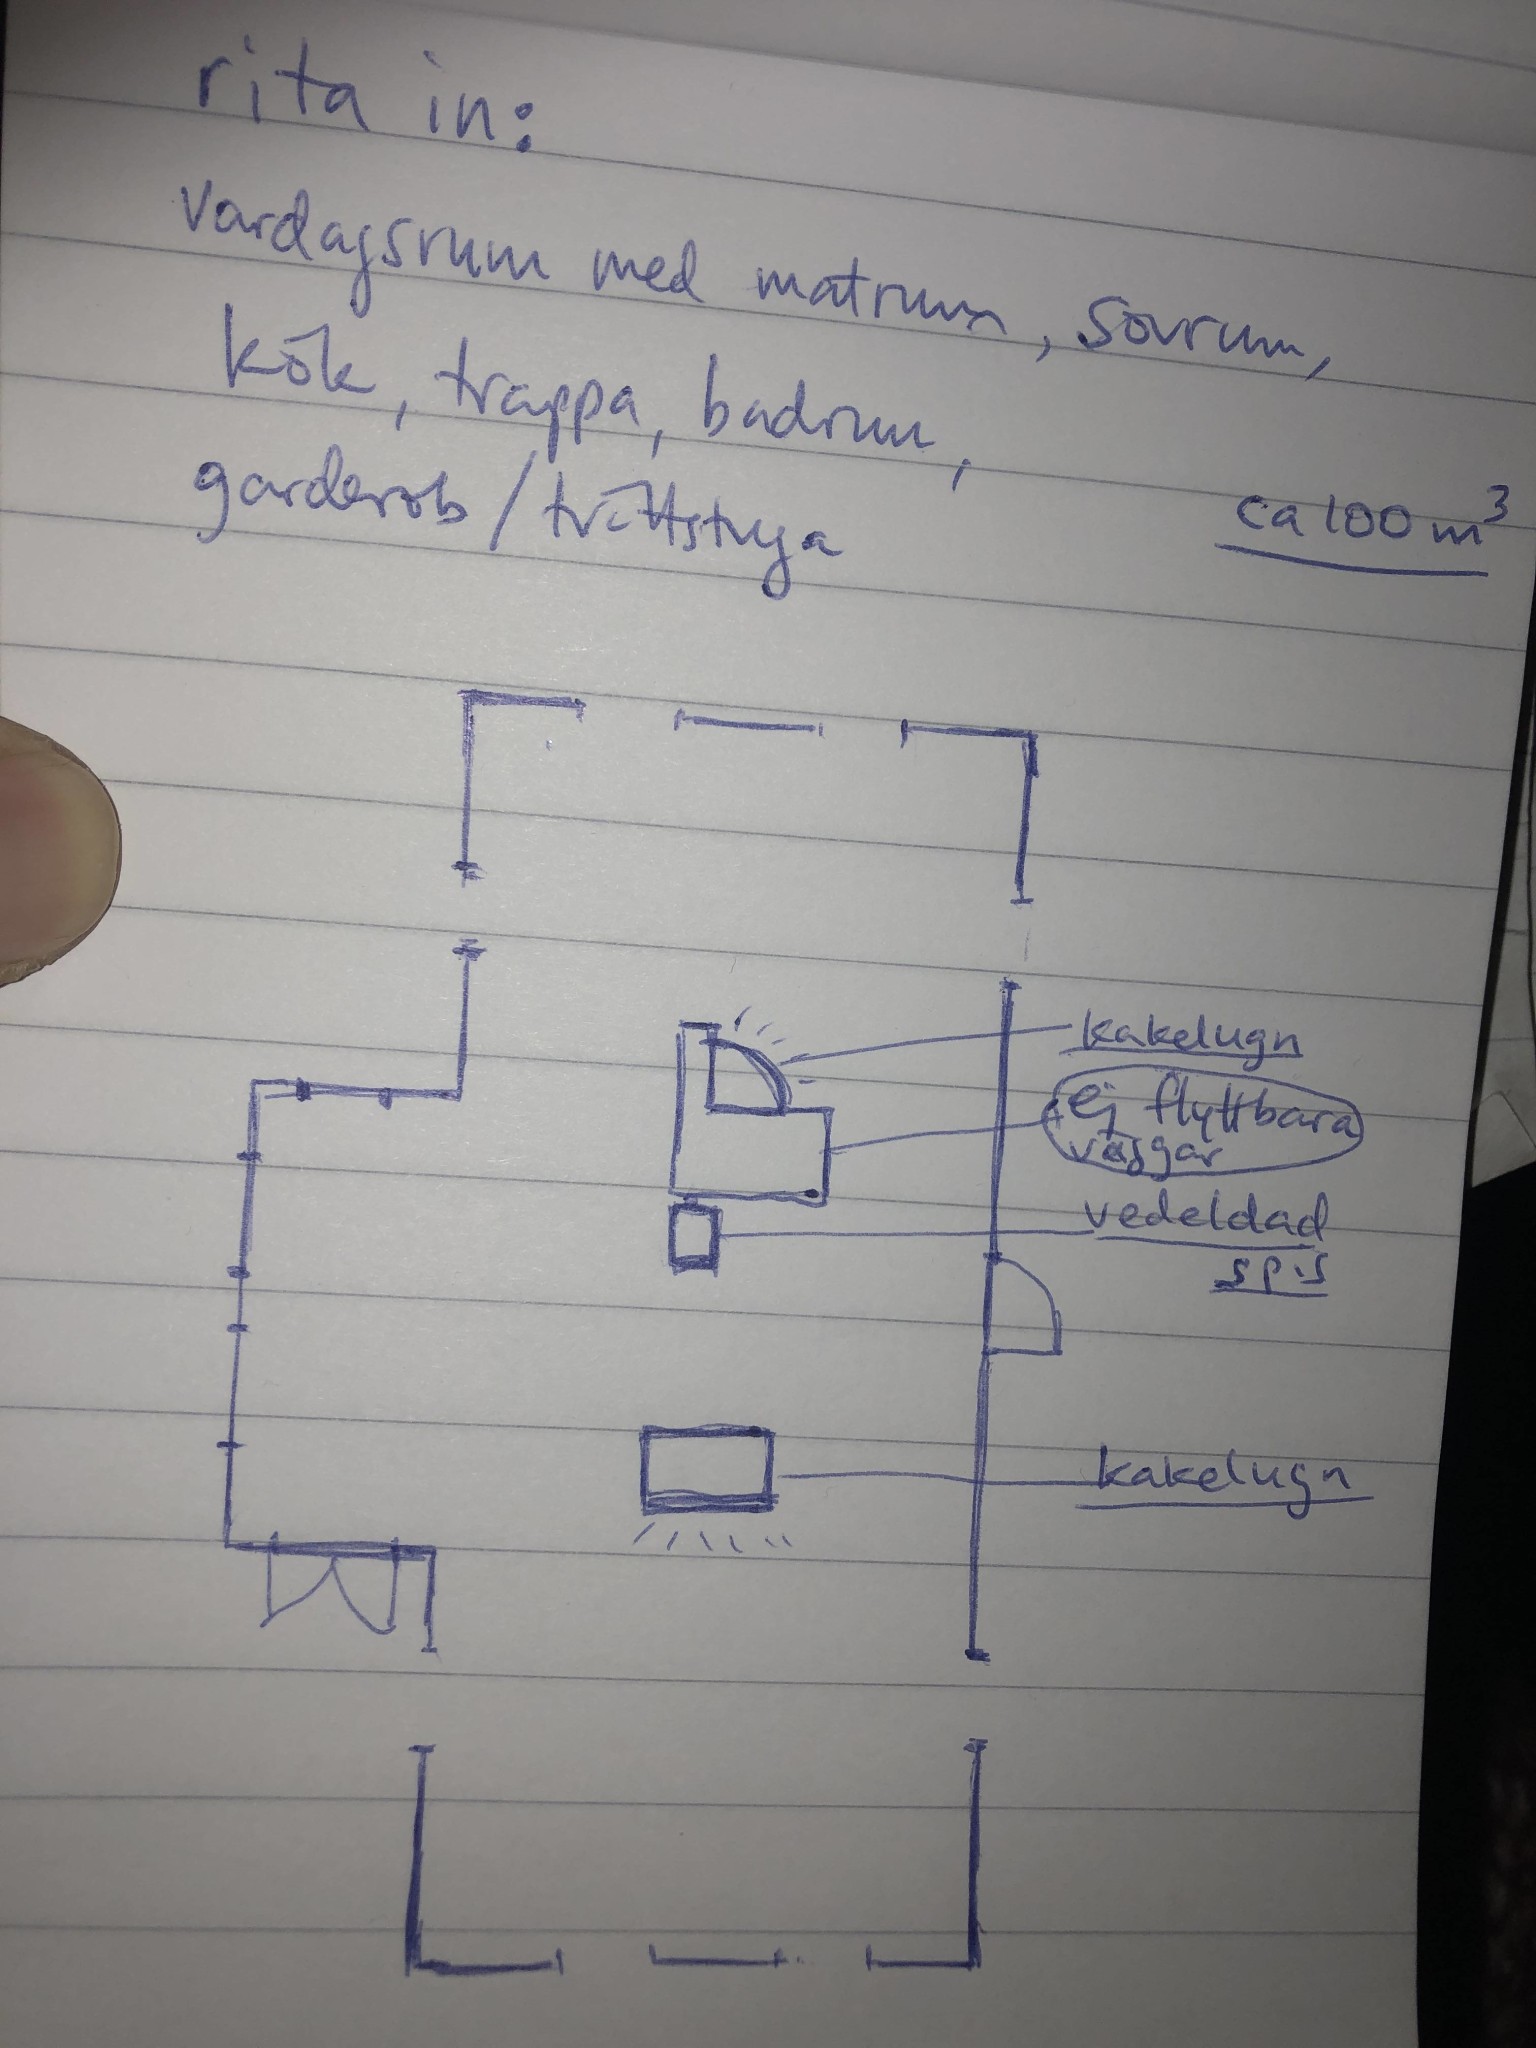 rita in:
vardagsrum med matrum, sovrum,
kök, trappa, badrum,
garderob/tvättstuga
ca 100 m³
kakelugn
ej flyttbara
väggar
vedeldad
spis
kakelugn